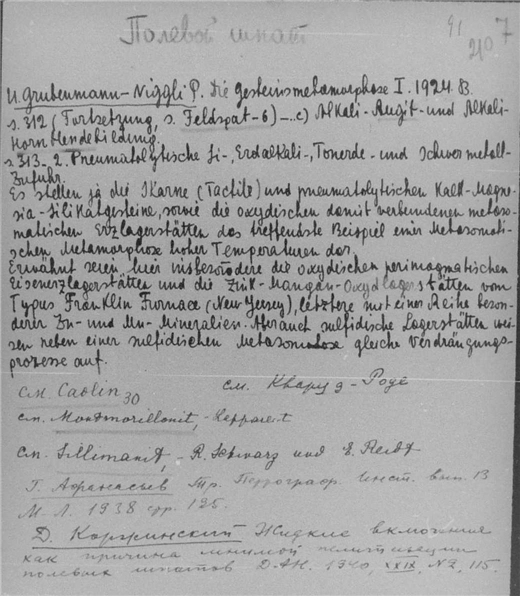 Полевой шпат
91
210 7
U. Grubenmann-Niggli P. Die Gesteinsmetamorphose I. 1924. B.
s. 312 (Fortsetzung, s. Feldspat-6) – c) Alkali-Augit- und Alkali-
Hornblendebildung.
s. 313. 2. Pneumatolytische Si-, Erdalkali-, Tonerde- und Schwermetall-
zufuhr.
Es stellen ja die Skarne (Tactite) und pneumatolytischen Kalk-Magne-
sia-Silikatgesteine, sowie die oxydischen damit verbundenen metaso-
matischen Erzlagerstätten das treffendste Beispiel einer Metasomati-
schen Metamorphose hoher Temperaturen dar.
Erwähnt seien hier insbesondere die oxydischen perimagmatischen
Eisenerzlagerstätten und die Zink-Mangan-Oxydlagerstätten vom
Typus Franklin Furnace (New Jersey), letztere mit einer Reihe beson-
derer Zn- und Mn-Mineralien. Aber auch sulfidische Lagerstätten wei-
sen neben einer sulfidischen Metasomatose gleiche Verdrängungs-
prozesse auf.
см. Caolin 30
см. Кварц 9-Роде
см. Montmorillonit,
см. Sillimanit, - R. Schwarz und E.
Г. Афанасьев Тр. Петрограф. Инст. вып. 13
М. Л. 1938 стр. 125.
Д. Коржинский Жидкие включения
как причина мнимой пелитизации
полевых шпатов Д.АН. 1940, XXIX, №2, 115.